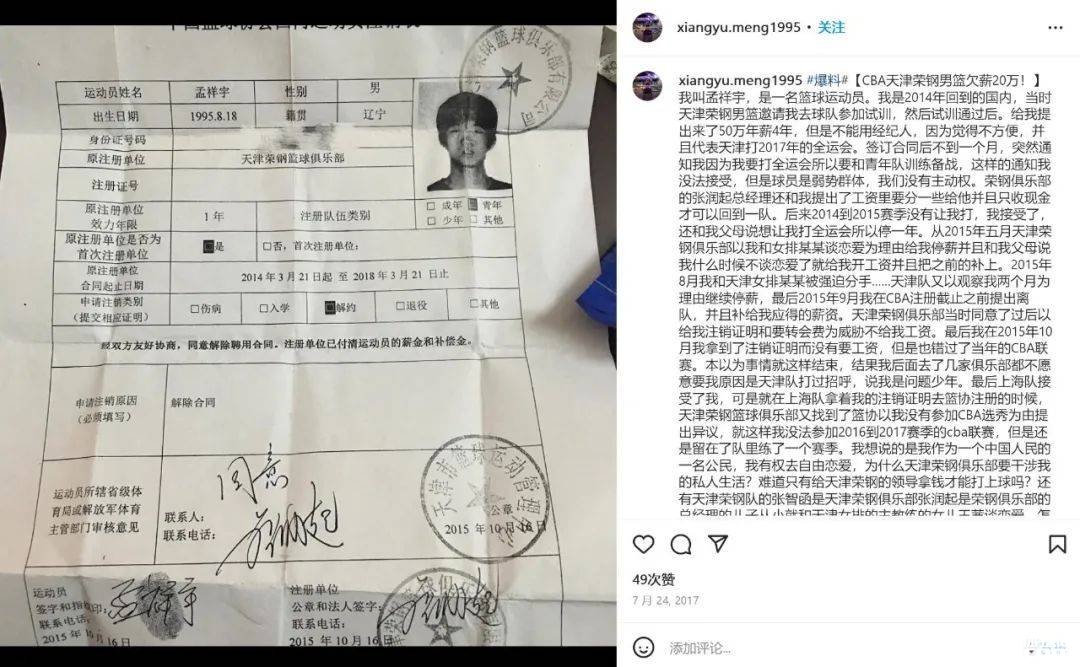 运动员姓名 孟祥宇 性别 男
出生日期 1995.8.18 籍贯 辽宁
身份证号码
原注册单位 天津荣钢篮球俱乐部
注册证号
原注册单位
效力年限 1 年 注册队伍类别 □ 成年 ■ 青年
□ 少年 □ 其他
原注册单位是否为
首次注册单位 ■是 □否,首次注册单位:
原注册单位
合同起止日期 2014 年 3 月 21 日起 至 2018 年 3 月 21 日止
申请注销类别
(提交相应证明) □伤病 □入学 ■解约 □退役 □其他
经双方友好协商,同意解除聘用合同。注册单位已付清运动员的薪金和补偿金。
申请注销原因
(必须填写) 解除合同
运动员所辖省级体
育局或解放军体育
主管部门审核意见
同意
联系人:
联系电话:
天津市篮球运动管理
公章
2015 年 10 月 16 日
运动员
签字和指纹印:
孟祥宇
联系电话:
2015 年 10 月 16 日
注册单位
公章和法人签字:
联系电话:
2015 年 10 月 16 日
xiangyu.meng1995 • 关注
xiangyu.meng1995 #爆料#【CBA天津荣钢男篮欠薪20万!】
我叫孟祥宇,是一名篮球运动员。我是2014年回到的国内,当时
天津荣钢男篮邀请我去球队参加试训,然后试训通过后。给我
提出来了50万年薪4年,但是不能用经纪人,因为觉得不方便,并
且代表天津打2017年的全运会。签订合同后不到一个月,突然通
知我因为我要打全运会所以要和青年队训练备战,这样的通知我
没法接受,但是球员是弱势群体,我们没有主动权。荣钢俱乐部
的张润起总经理还和我提出了工资里要分一些给他并且只收现金
才可以回到一队。后来2014到2015赛季没有让我打,我接受了,
还和我父母说想让我打全运会所以停一年。从2015年五月天津荣
钢俱乐部以我和女排某某谈恋爱为理由给我停薪并且和我父母说
我什么时候不谈恋爱了就给我开工资并且把之前的补上。2015年
8月我和天津女排某某被强迫分手......天津队又以观察我两个月为
理由继续停薪,最后2015年9月我在CBA注册截止之前提出离
队,并且补给我应得的薪资。天津荣钢俱乐部当时同意了过后以
给我注销证明和要转会费为威胁不给我工资。最后我在2015年10
月我拿到了注销证明而没有要工资,但是也错过了当年的CBA联
赛。本以为事情就这样结束,结果我后面去了几家俱乐部都不愿
意要我原因是天津队打过招呼,说我是问题少年。最后上海队接
受了我,可是就在上海队拿着我的注销证明去篮协注册的时候,
天津荣钢篮球俱乐部又找到了篮协以我没有参加CBA选秀为由提
出异议,就这样我没法参加2016到2017赛季的cba联赛,但是还
是留在了队里练了一个赛季。我想说的是我作为一个中国人民的
一名公民,我有权去自由恋爱,为什么天津荣钢俱乐部要干涉我
的私人生活?难道只有给天津荣钢的领导拿钱才能打上球吗?还
有天津荣钢队的张智函是天津荣钢俱乐部张润起是荣钢俱乐部的
总经理的儿子从小就和天津女排的主教练的女儿王茜谈恋爱,怎
49次赞
7 月 24, 2017
添加评论...